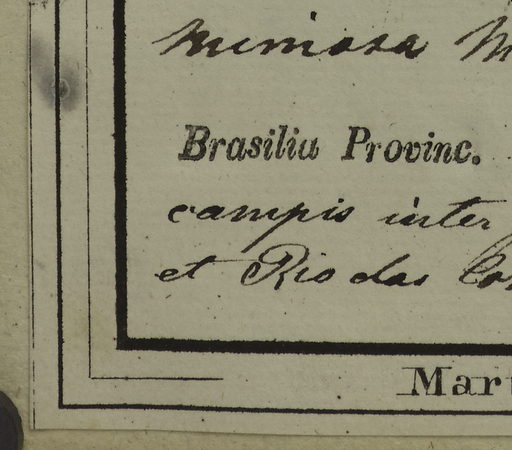 Mimosa M
Brasilia Provinc.
campis inter
et Rio das Co
Mart